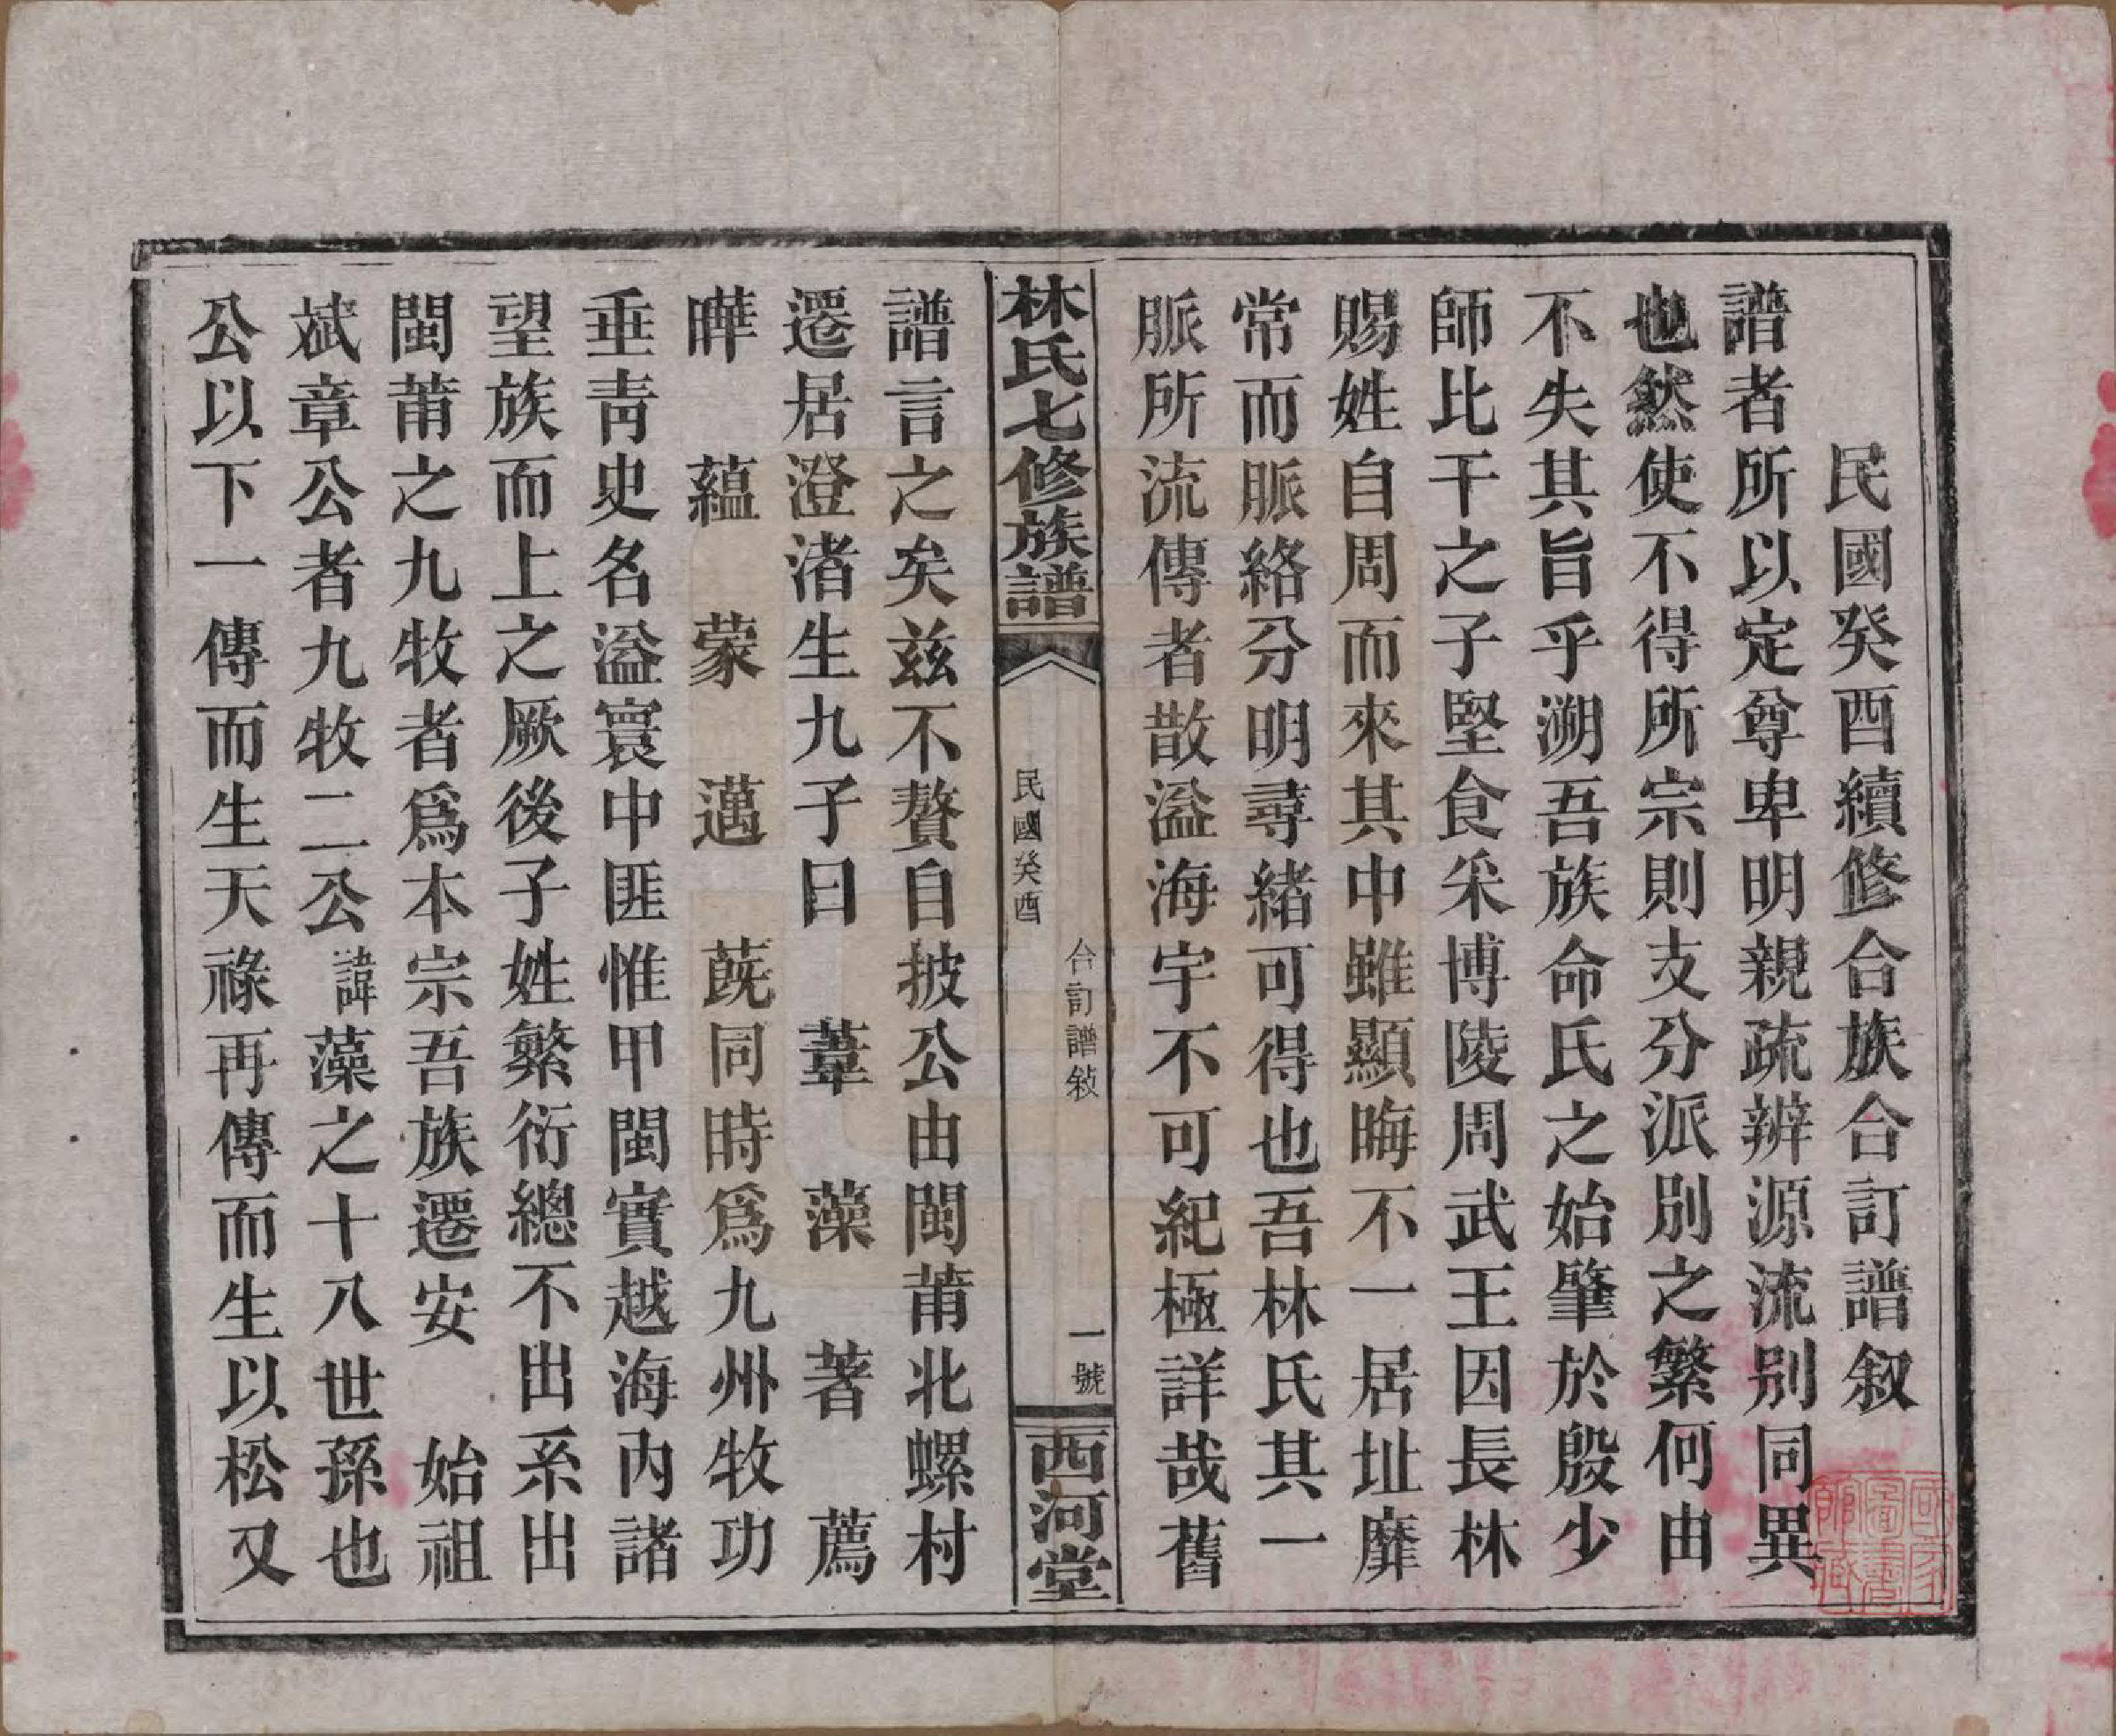 民國癸酉續修合族合訂譜叙
譜者所以定尊卑明親疏辨源流别同異
也然使不得所宗則支分派別之繁何由
不失其旨乎溯吾族命氏之始肇於殷少
師比干之子堅食采博陵周武王因長林
賜姓自周而來其中雖顯晦不一居址靡
常而脈絡分明尋緒可得也吾林氏其一
脈所流傳者散溢海宇不可紀極詳哉舊
林氏七修族譜
民國癸酉
合訂譜敍
一號
西河堂
譜言之矣茲不贅自披公由閩莆北螺村
遷居澄渚生九子曰 葦 藻 著 薦
曄 蘊 蒙 邁 蔇同時爲九州牧功
垂青史名溢寰中匪惟甲閩實越海内諸
望族而上之厥後子姓繁衍總不出系出
閩莆之九牧者爲本宗吾族遷安 始祖
斌章公者九牧二公諱藻之十八世孫也
公以下一傳而生天祿再傳而生以松又